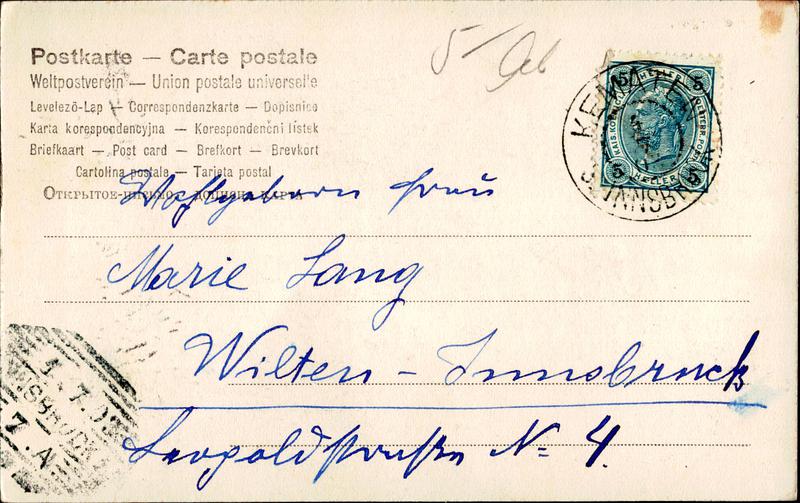 Postkarte — Carte postale
Weltpostverein — Union postale universelle
Levelező-Lap — Correspondenzkarte — Dopisnice
Karta korespondencyjna — Korespondenční lístek
Briefkaart — Post card — Brefkort — Brevkort
Cartolina postale — Tarjeta postal
Открытое письмо
5
5 HELLER 5
5 HELLER 5
KEMATEN
INNSBR
Wohlgeboren Frau
Marie Lang
Wilten - Innsbruck
Leopoldstraße No 4.
INNSBRUCK